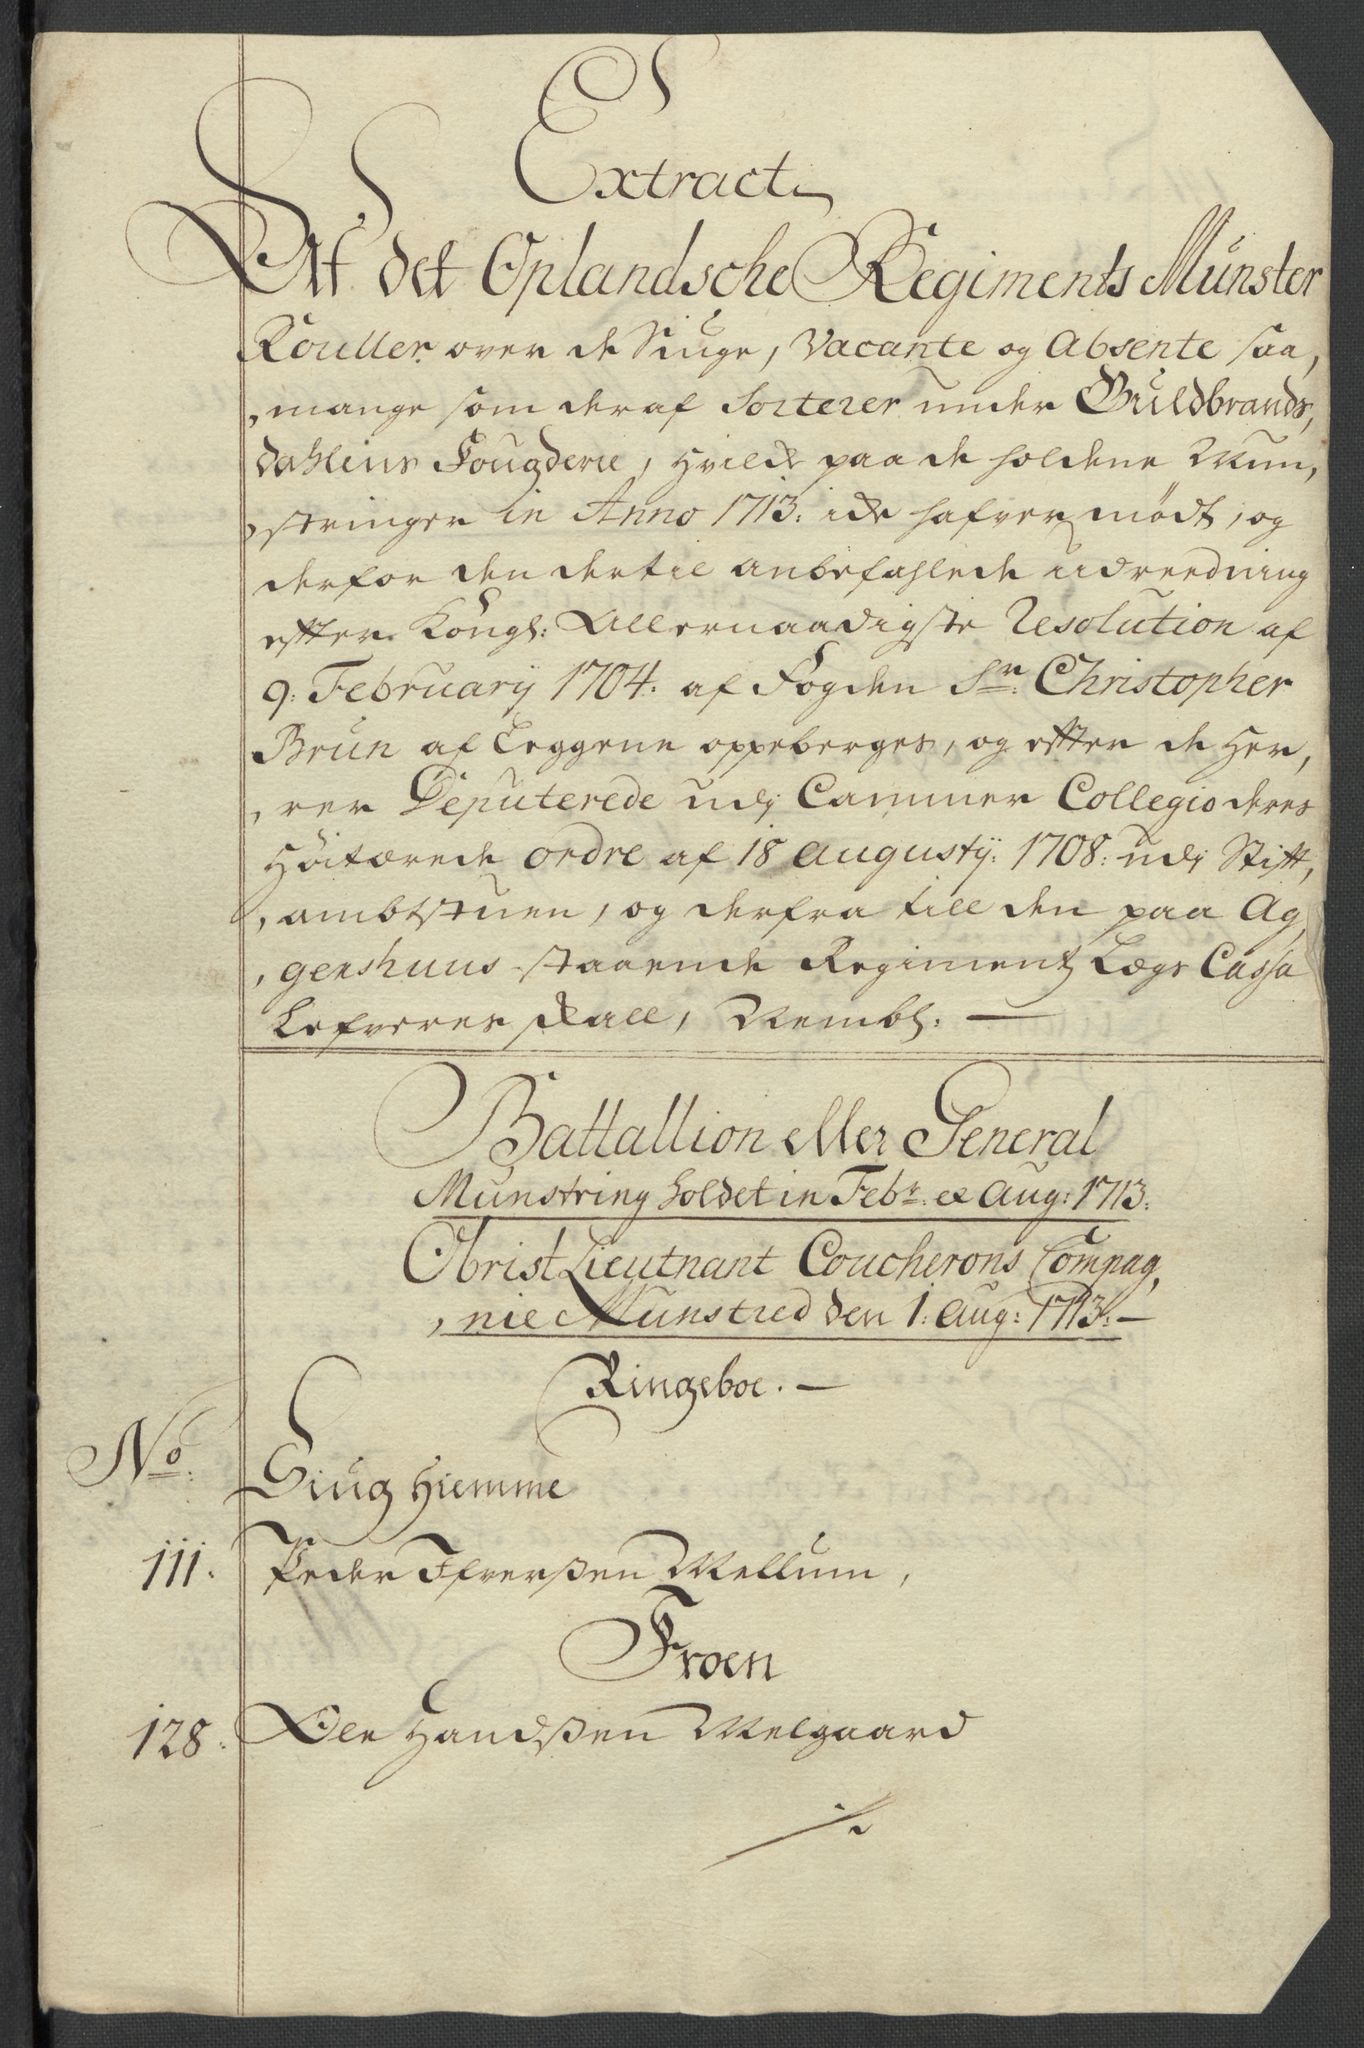 Extract
Af det Oplandsche Regiments Munster
Rouller over de Siuge, Vacante og Absente saa,
,mange som deraf Sorterer under Guldbrands,
dahlens Fougderie, hvilke paa de holdene Mun,
,stringer in Anno 1713: iche hafver mødt, og
derfor den dertil anbefahlede udreedning
efter Kongl: Allernaadigste Resolution af
9. February 1704. af Fogden Sr: Christopher
Brun af Leggene oppeberges, og efter de Her,
,rer Deputerede udj Cammer Collegio deres
Høitærede ordre af 18 augustij: 1708: udj Stift,
,ambtstuen, og derfra till den paa Ag,
,gershuus staaende Regiments Lægs Cassa
Lefveres skall, Nembl: —
Battallion eller General
Munstring holdet in Febr: et Aug: 1713.
Obrist Lieutnant Coucherons Compag,
,nie Munstred den 1: Aug: 1713. —
Ringeboe. —
No:
Siug Hiemme
111. Peder Ifverßen Mellum,
Froen
128. Ole Handßen Melgaard